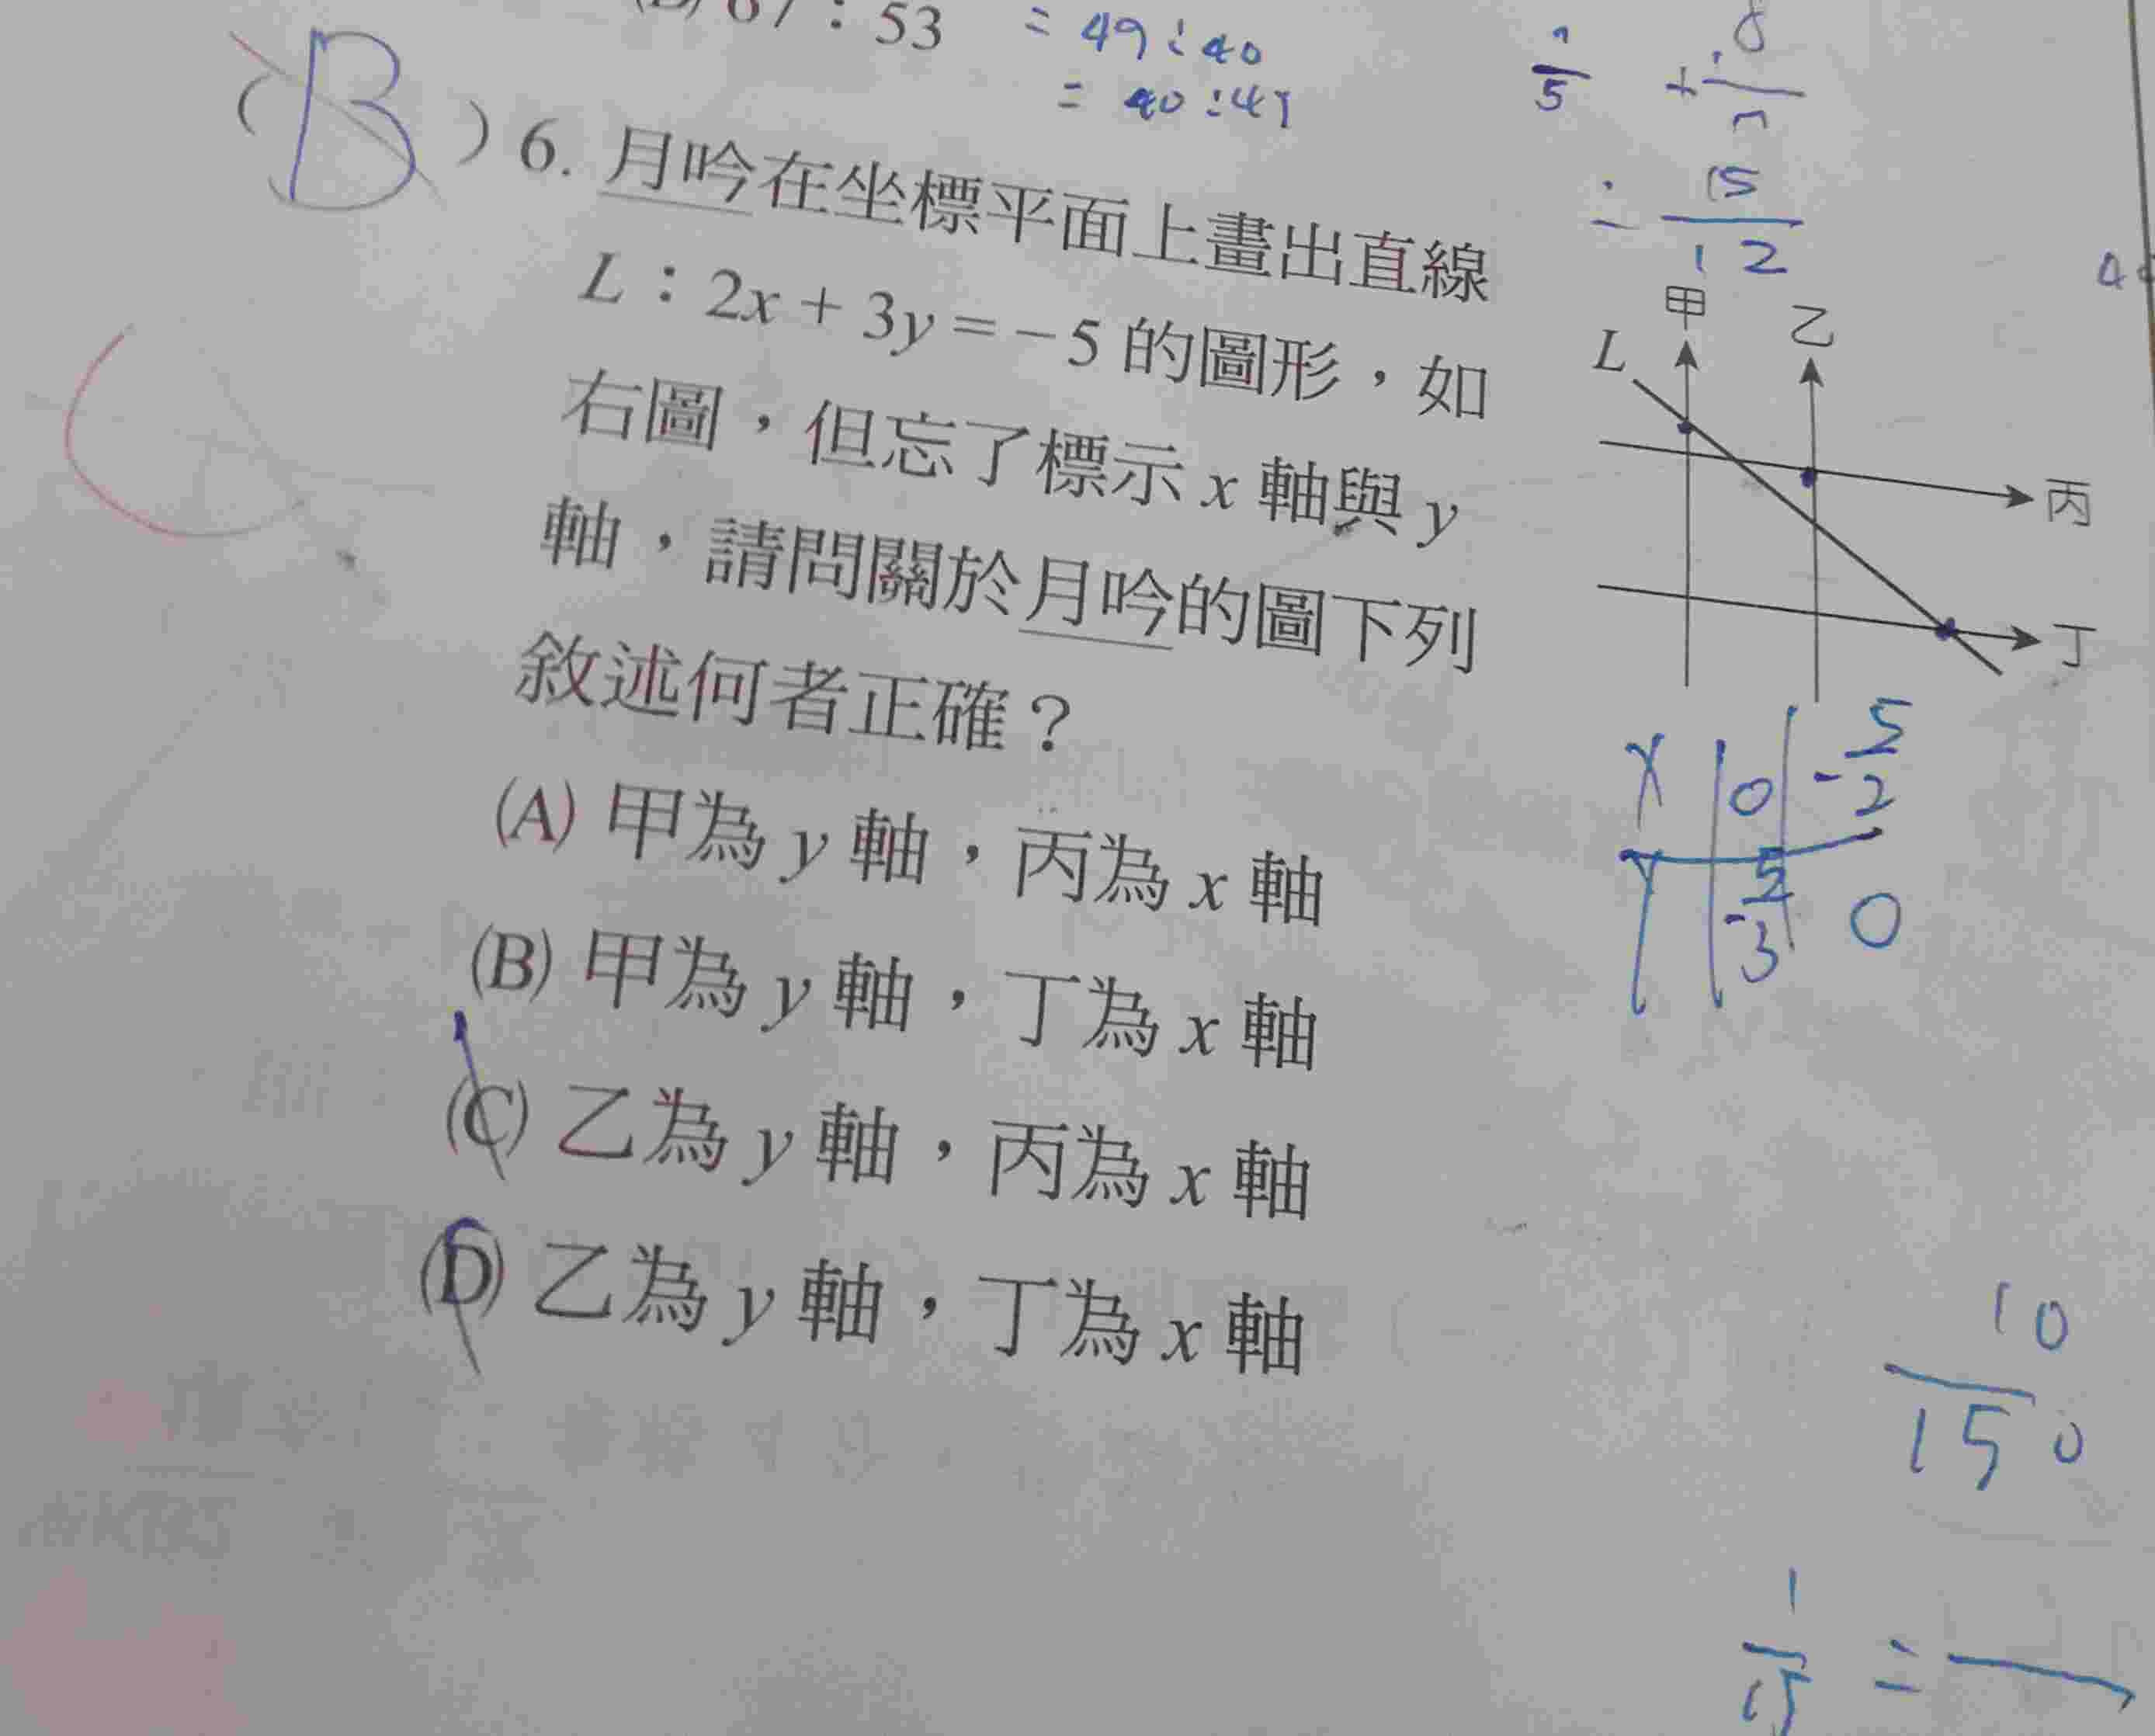 : 53 = 49:40
= 40:49
(B) 6. 月吟在坐標平面上畫出直線
L:2x + 3y = -5 的圖形,如
右圖,但忘了標示 x 軸與 y
軸,請問關於月吟的圖下列
敘述何者正確?
(A) 甲為 y 軸,丙為 x 軸
(B) 甲為 y 軸,丁為 x 軸
(C) 乙為 y 軸,丙為 x 軸
(D) 乙為 y 軸,丁為 x 軸
5
= 15/12
甲 乙
L
丙
丁
x 0 -5/2
y -5/3 0
10
150
1/15 =